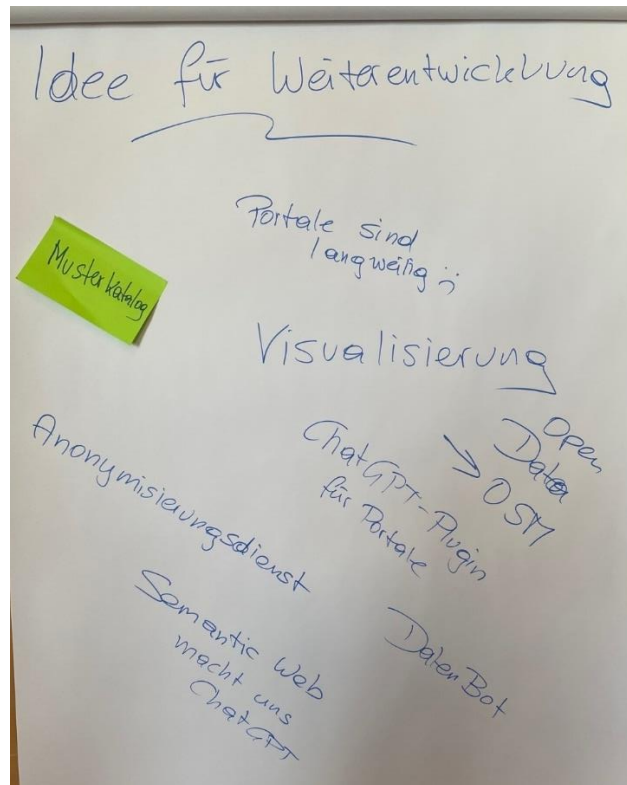 Idee für Weiterentwicklung
Portale sind
langweilig :(
Musterkatalog
Visualisierung
Open
Data
→ OSM
ChatGPT-Plugin
für Portale
Anonymisierungsdienst
DatenBot
Semantic Web
macht uns
ChatGPT